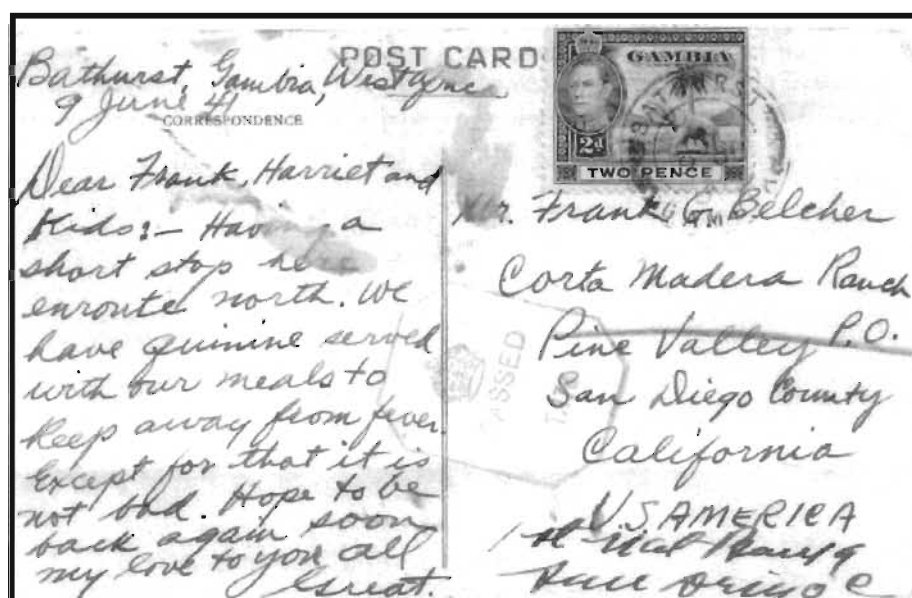 POST CARD
Bathurst, Gambia, West Africa
9 June 41
CORRESPONDENCE
Dear Frank, Harriet and
Kids:— Having a
short stop here
enroute north. We
have quinine served
with our meals to
keep away from fever.
Except for that it is
not bad. Hope to be
back again soon
my love to you all
Great.
GAMBIA
2d
TWO PENCE
BATHURST
Mr. Frank G. Belcher
Corta Madera Ranch
Pine Valley P.O.
San Diego County
California
U.S. AMERICA
PASSED